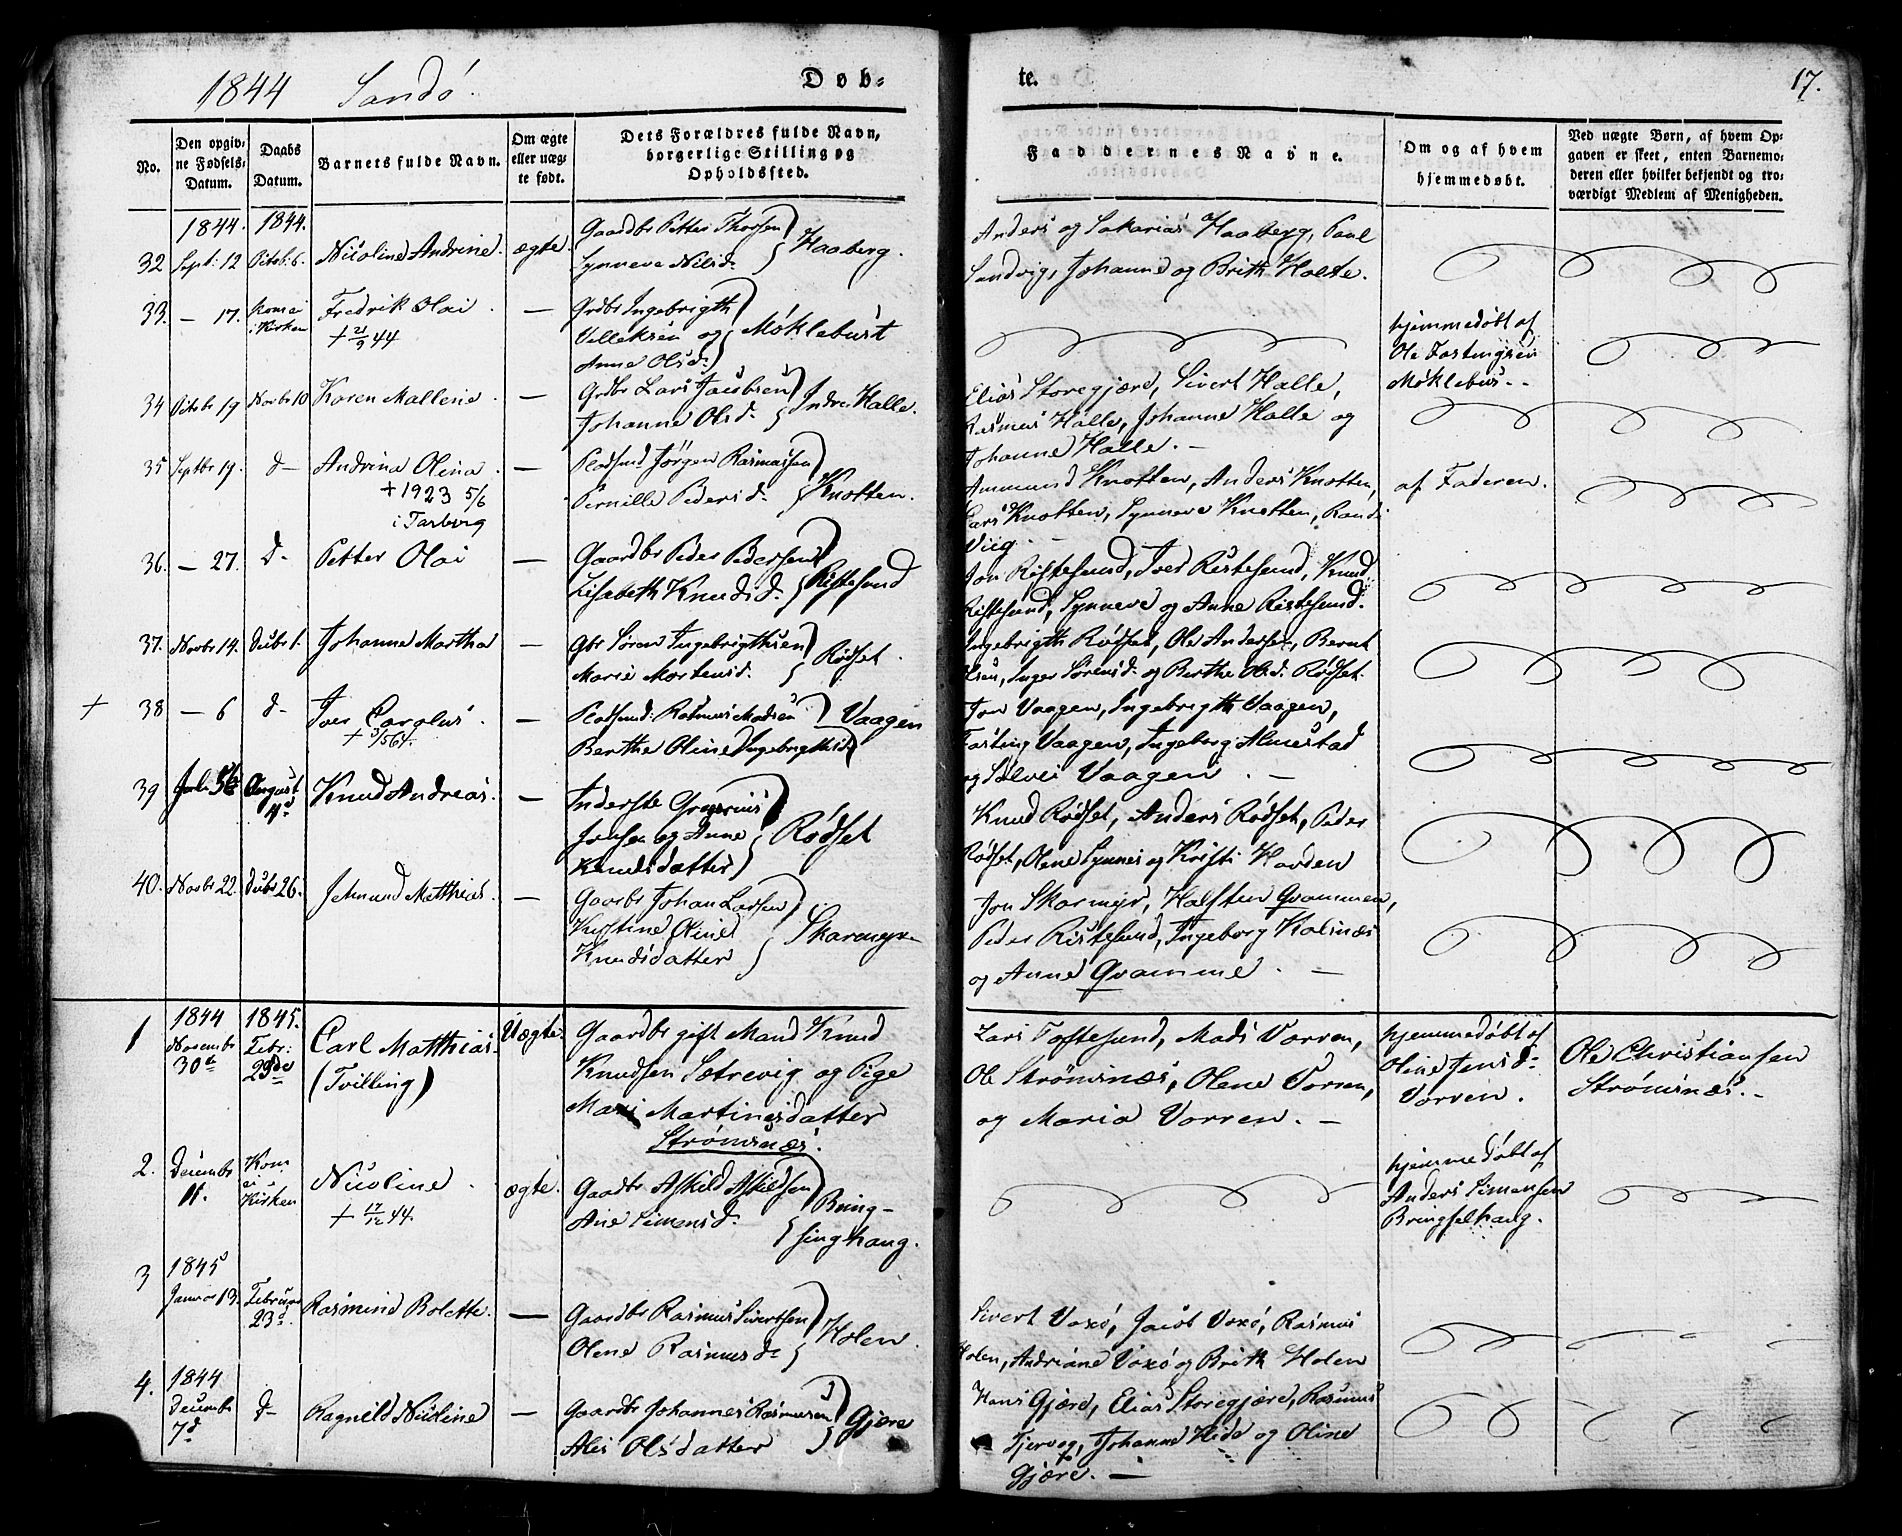 1844 Sandö.
Døb=
te.
17.
No.
Den opgiv=
ne Fødsels=
Datum.
Daabs
Datum.
Barnets fulde Navn.
Om ægte
eller uæg=
te født.
Dets Forældres fulde Navn,
borgerlige Stilling og
Opholdssted.
Faddernes Navne.
Om og af hvem
hjemmedøbt.
Ved uægte Børn, af hvem Op=
gaven er skeet, enten Barnemo=
deren eller hvilket bekjendt og tro=
værdigt Medlem af Menigheden.
1844. 1844.
32 Sept: 12 Octob: 6. Nicoline Andrine. ægte.
Gaardbr Petter Thorsen
Synneve Nilsd.
Haaberg.
Anders og Sakarias Haaberg, Paul
Sandvig, Johanne og Brith Holste.
33. — 17. Kom ei
i Kirken
Fredrik Olai.
+ 21/9 44
—
Grdbr Ingebrigth
Velleksen og
Anne Olsd.
Möklebust
hjemmedöbt af
Ole Fastingsen
Möklebus..
34 Octobr 19 Novbr 10 Karen Mallene. —
Grdbr Lars Jacobsen
Johanne Olsd.
Indre Halle.
Elias Storegjære, Sivert Halle,
Rasmus Halle, Johanne Halle og
Johanne Halle. —
35 Septbr 19. d— Andrina Olina. —
+ 1923 5/6
i Tarberg
Pladsmd Jörgen Rasmussen
Pernille Pedersd.
Knotten.
Ammund Knotten, Anders Knotten,
Lars Knotten, Synneve Knotten, Randi
Viig. —
af Faderen.
36. — 27. d— Petter Olai —
Gaardbr Peder Pedersen
Lisabeth Knudsd.
Ristesund
Jon Ristesund, Iver Ristesund, Knud
Ristesund, Synneve og Anne Ristesund.
37. Novbr 14. Decbr 1. Johanne Martha —
Gbr Sören Ingebrigthsen
Marie Mortensd.
Rödset.
Ingebrigth Rödset, Ole Andersen, Bernt
Olsen, Inger Sörensd. og Berthe Olsd. Rödset.
+ 38 — 6 d— Iver Carolus. —
+ 3/5 64.
Pladsmd: Rasmus Madsen
Berthe Oline Ingebrigthsd.
Vaagen
Jon Vaagen, Ingebrigth Vaagen,
Fasting Vaagen, Ingeborg Almestad
og Sölvei Vaagen. —
39 August Knud Andreas. —
Inderste
Jonsen og Anne
Knudsdatter
Rödset
Knud Rödset, Anders Rödset, Peder
Rödset, Olene Synnes og Kristi Havden
40. Novbr 22. Decbr 26. Jetmund Matthias. —
Gaardbr Johan Larsen
Kristine Oline
Knudsdatter
Skarmyr
Jon Skarmyr, Halsten Qvammen,
Peder Ristesund, Ingeborg Kalsnæs
og Anne Qvamme. —
1 1844
Novembr
30te
1845.
Febr:
23de
Carl Matthias.
(Tvilling)
Uægte.
Gaardbr gift Mand Knud
Knudsen Sætrevig og Pige
Mari Martinesdatter
Strömsnæs.
Lars Toftesund, Mads Vorren,
Ole Strömsnæs, Olene Vorren,
og Maria Vorren. —
hjemmedöbt af
Oline Jensd.
Vorren.
Ole Christiansen
Strömsnæs. —
2. Decembr
11.
Kom
ei i
Kirken
Nicoline.
+ 17/12 44.
ægte.
Gaardbr Askild Askildsen
Ane Simensd.
Bring-
singhaug.
hjemmedöbt af
Anders Simensen
Bringselhaug.
3 1845
Januar 13. Februar
23d.
Rasmine Bolette. —
Gaardbr Rasmus Sivertsen
Olene Rasmusd.
Holen.
Sivert Voxö, Jacob Voxö, Rasmus
Holen, Andriane Voxö og Brith Holen
4. 1844
Decembr
7d
d— Ragnild Nicoline —
Gaardbr Johannes Rasmusen
Ales Olsdatter
Gjære
Hans Gjære, Elias Storegjære, Rasmus
Tjervaag, Johanne Hide og Oline
Gjære. —